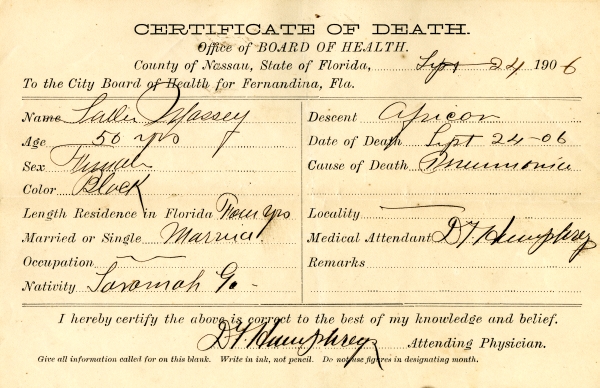 CERTIFICATE OF DEATH.
Office of BOARD OF HEALTH.
County of Nassau, State of Florida, Sept 24 1906
To the City Board of Health for Fernandina, Fla.
Name Massey
Age 50 yrs
Sex Female
Color Black
Length Residence in Florida Four yrs
Married or Single Married.
Occupation
Nativity Savannah Ga -
Descent African
Date of Death Sept 24-06
Cause of Death Pneumonia
Locality
Medical Attendant D F Humphrey
Remarks
I hereby certify the above is correct to the best of my knowledge and belief.
D F Humphrey Attending Physician.
Give all information called for on this blank. Write in ink, not pencil. Do not use figures in designating month.